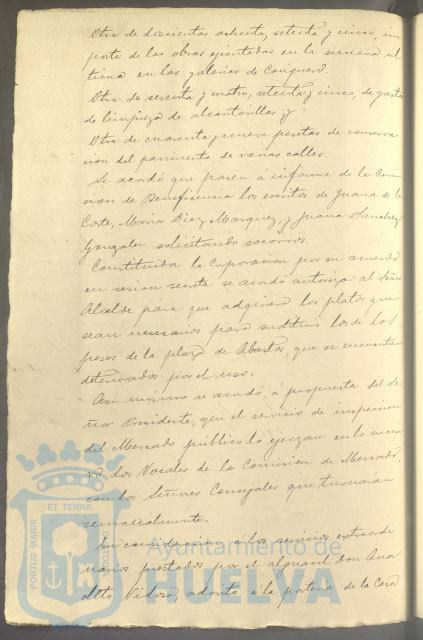 Otra de doscientas ochenta, setenta y cinco, im
porte de las obras ejecutadas en la semana ul
tima en las galerias de Conquero.
Otra de sesenta y cuatro, setenta y cinco, de gasto
de limpieza de alcantarillas y
Otra de cuarenta y nueve pesetas de conserva
cion del pavimento de varias calles.
Se acordó que pasen á informe de la Comi
sion de Beneficencia los escritos de Juana de la
Corte, Maria Diaz Marquez, y Juana Sanchez
Gonzalez solicitando socorros.
Constituida la Corporacion por su acuerdo
en sesion secreta se acordó autorizar al Señor
Alcalde para que adquiera los platos que
sean necesarios para sustituir los de los
pesos de la plaza de Abastos, que se encuentran
deteriorados por el uso.
Asi mismo se acordó, á propuesta del Se
ñor Presidente, que el servicio de inspeccion
del Mercado publico lo ejerzan en lo sucesi
vo dos Vocales de la Comision de Mercado
con los Señores Concejales que turnarán
semanalmente.
En consideracion á los servicios extraordi
narios prestados por el alguacil Don
adscrito á la porteria de la Casa
PORTUS MARIS ET TERRAE
Ayuntamiento de
HUELVA